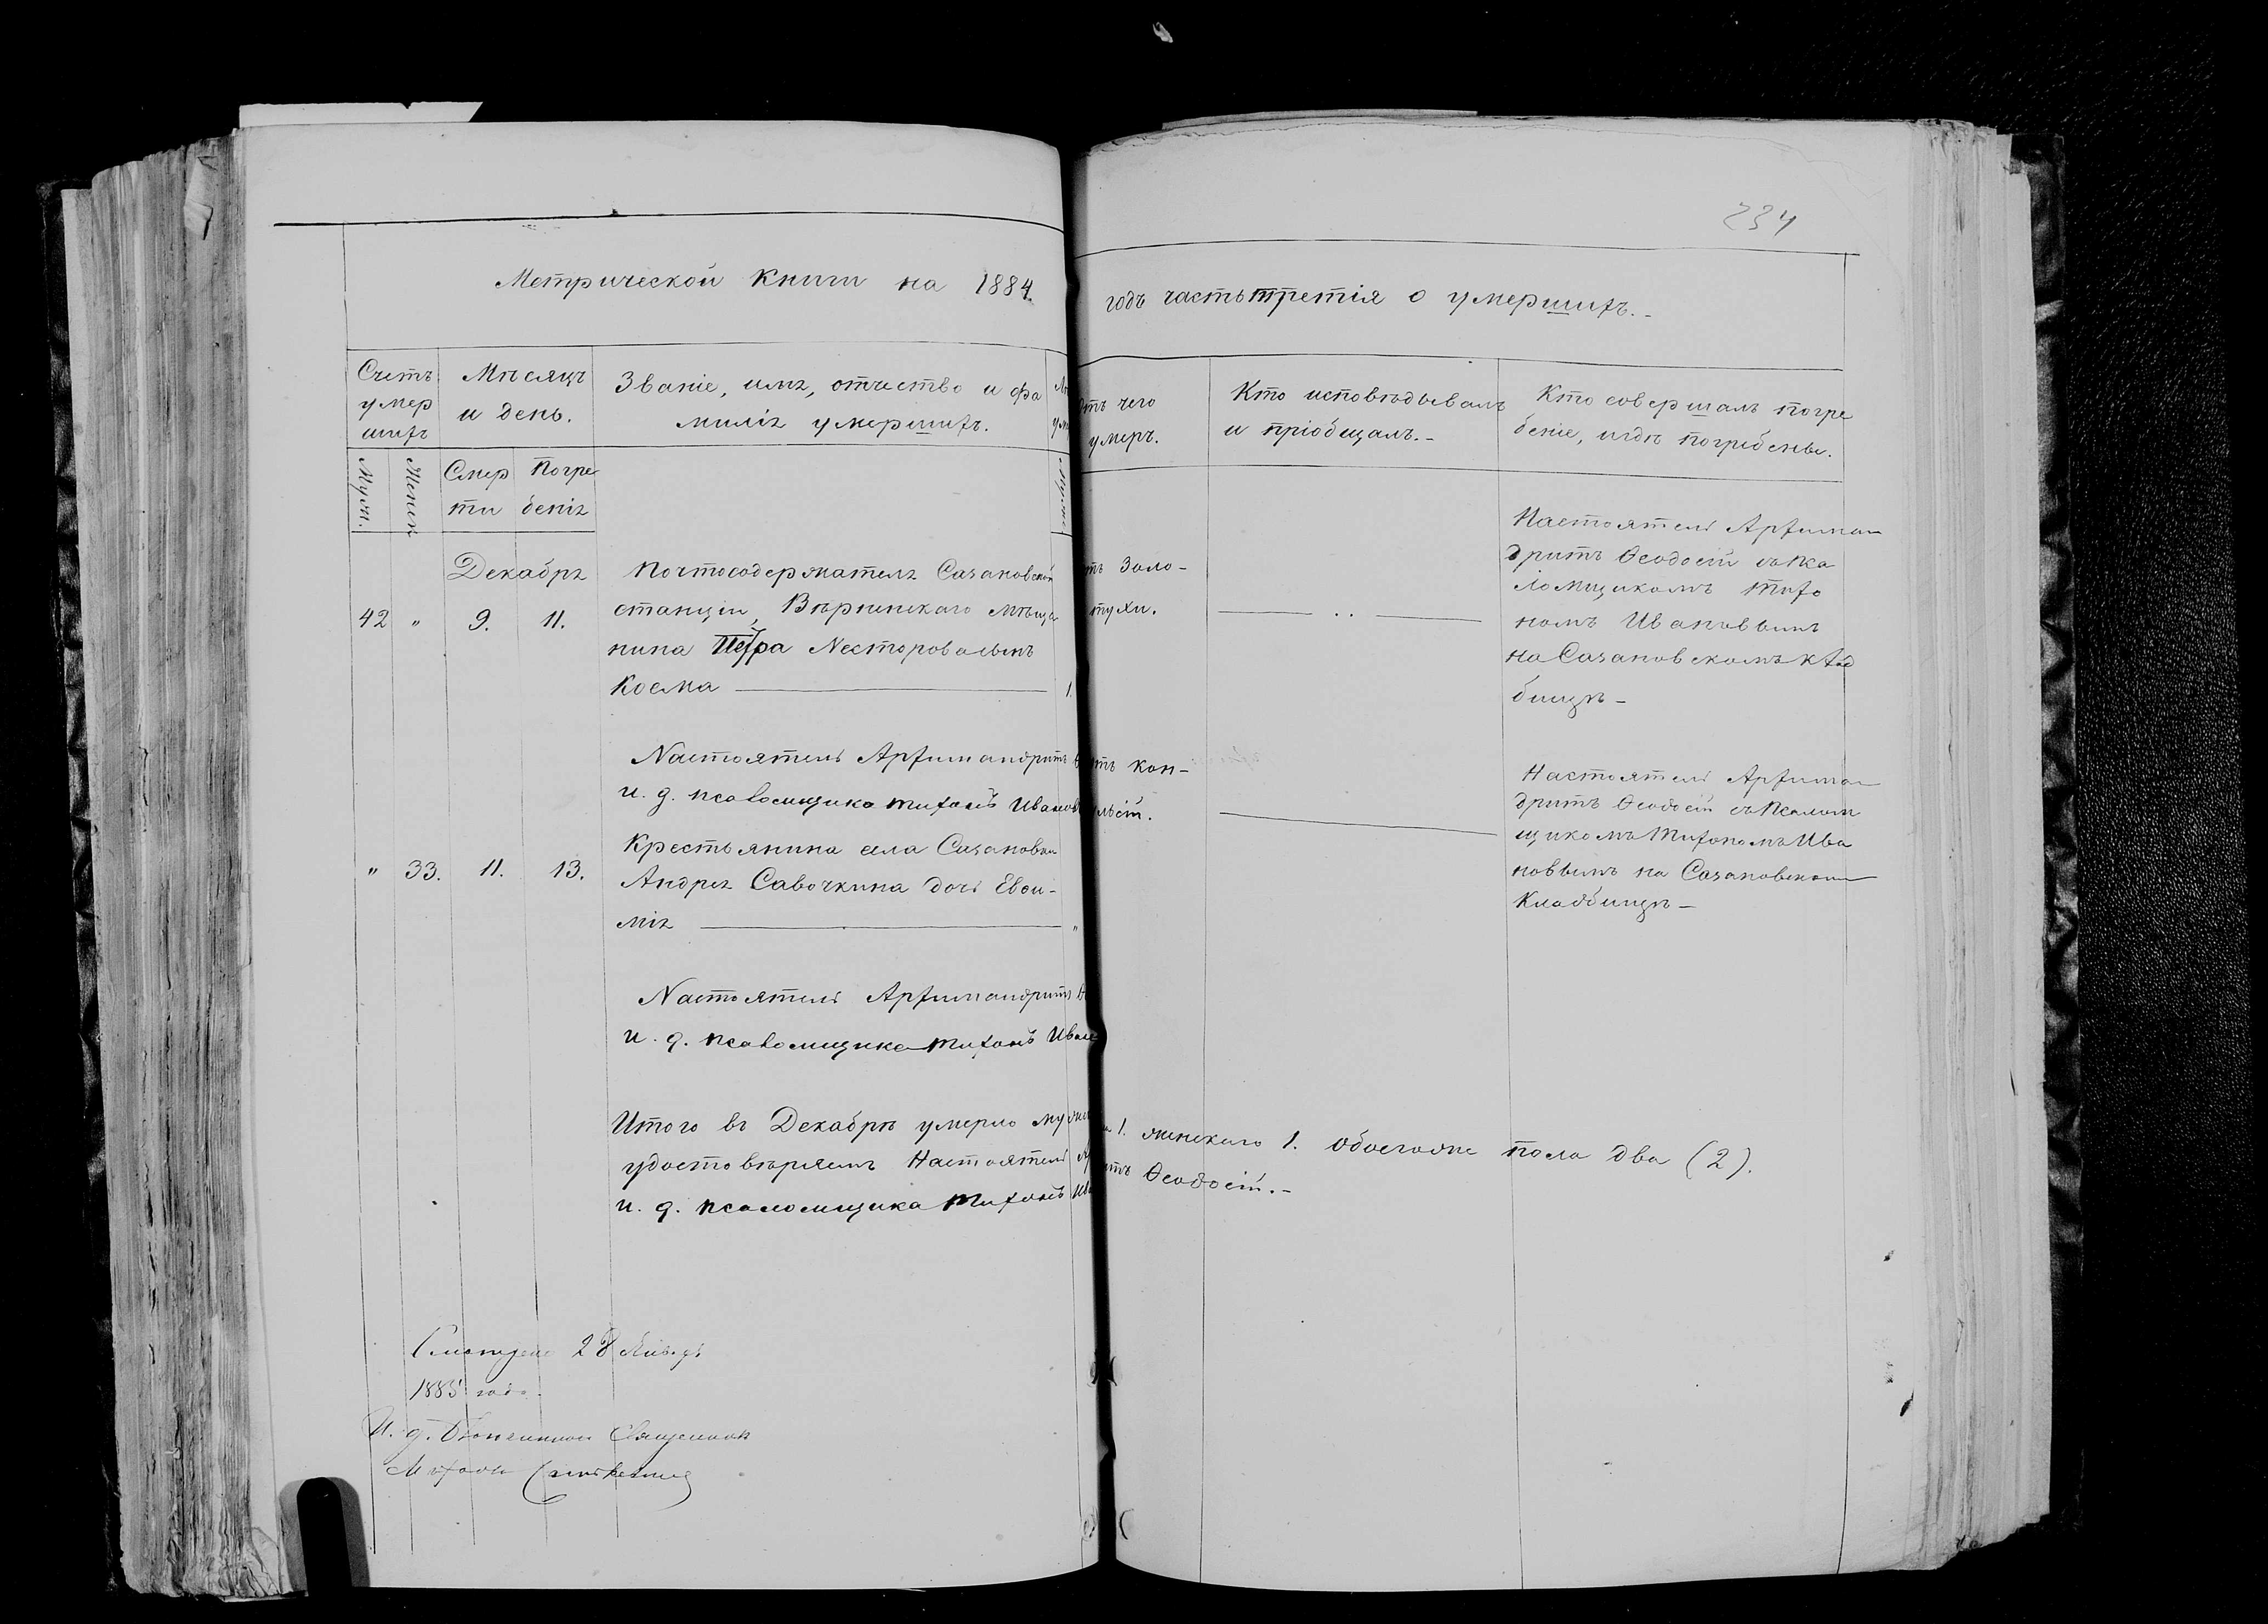 234
Метрической Книги на 1884.
годъ часть третія о умершихъ.
Счетъ умер шихъ
Мѣсяцъ и день.
Званіе, имя, отчество и фа
милія умершихъ.
отъ чего
умеръ.
Кто исповѣдывалъ
и пріобщалъ.
Кто совершалъ погре
беніе, и гдѣ погребены.
Муж.
Женск
Смер
ти
Погре
бенія
Декабря
42 " 9. 11.
Почтосодержателя Сазановской
станціи, Вѣрненскаго мѣща
нина Петра Несторова сынъ
Косма 1.
отъ Золо-
тухи.
Настоятель Архиман
дритъ Ѳеодосій съ пса
ломщикомъ Тихо
номъ Ивановымъ
на Сазановскомъ клад
бищѣ
Настоятель Архимандритъ
и. д. псаломщика Тихонъ Иванов
" 33. 11. 13.
Крестьянина села Сазановки
Андрея Савочкина дочь Евѳи-
мія "
отъ кон-
Настоятель Архиман
дритъ Ѳеодосій съ Псалом
щикомъ Тихономъ Ива
новымъ на Сазановском
Кладбищѣ
Настоятель Архимандритъ
и. д. псаломщика Тихонъ Иван
Итого въ Декабрѣ умерло муже 1. женскаго 1. обоего же пола два (2).
удостовѣряемъ Настоятель Ар Ѳеодосій.
и. д. псаломщика Тихонъ Ив
28
1885 года.
И. д. Благочиннаго Священник